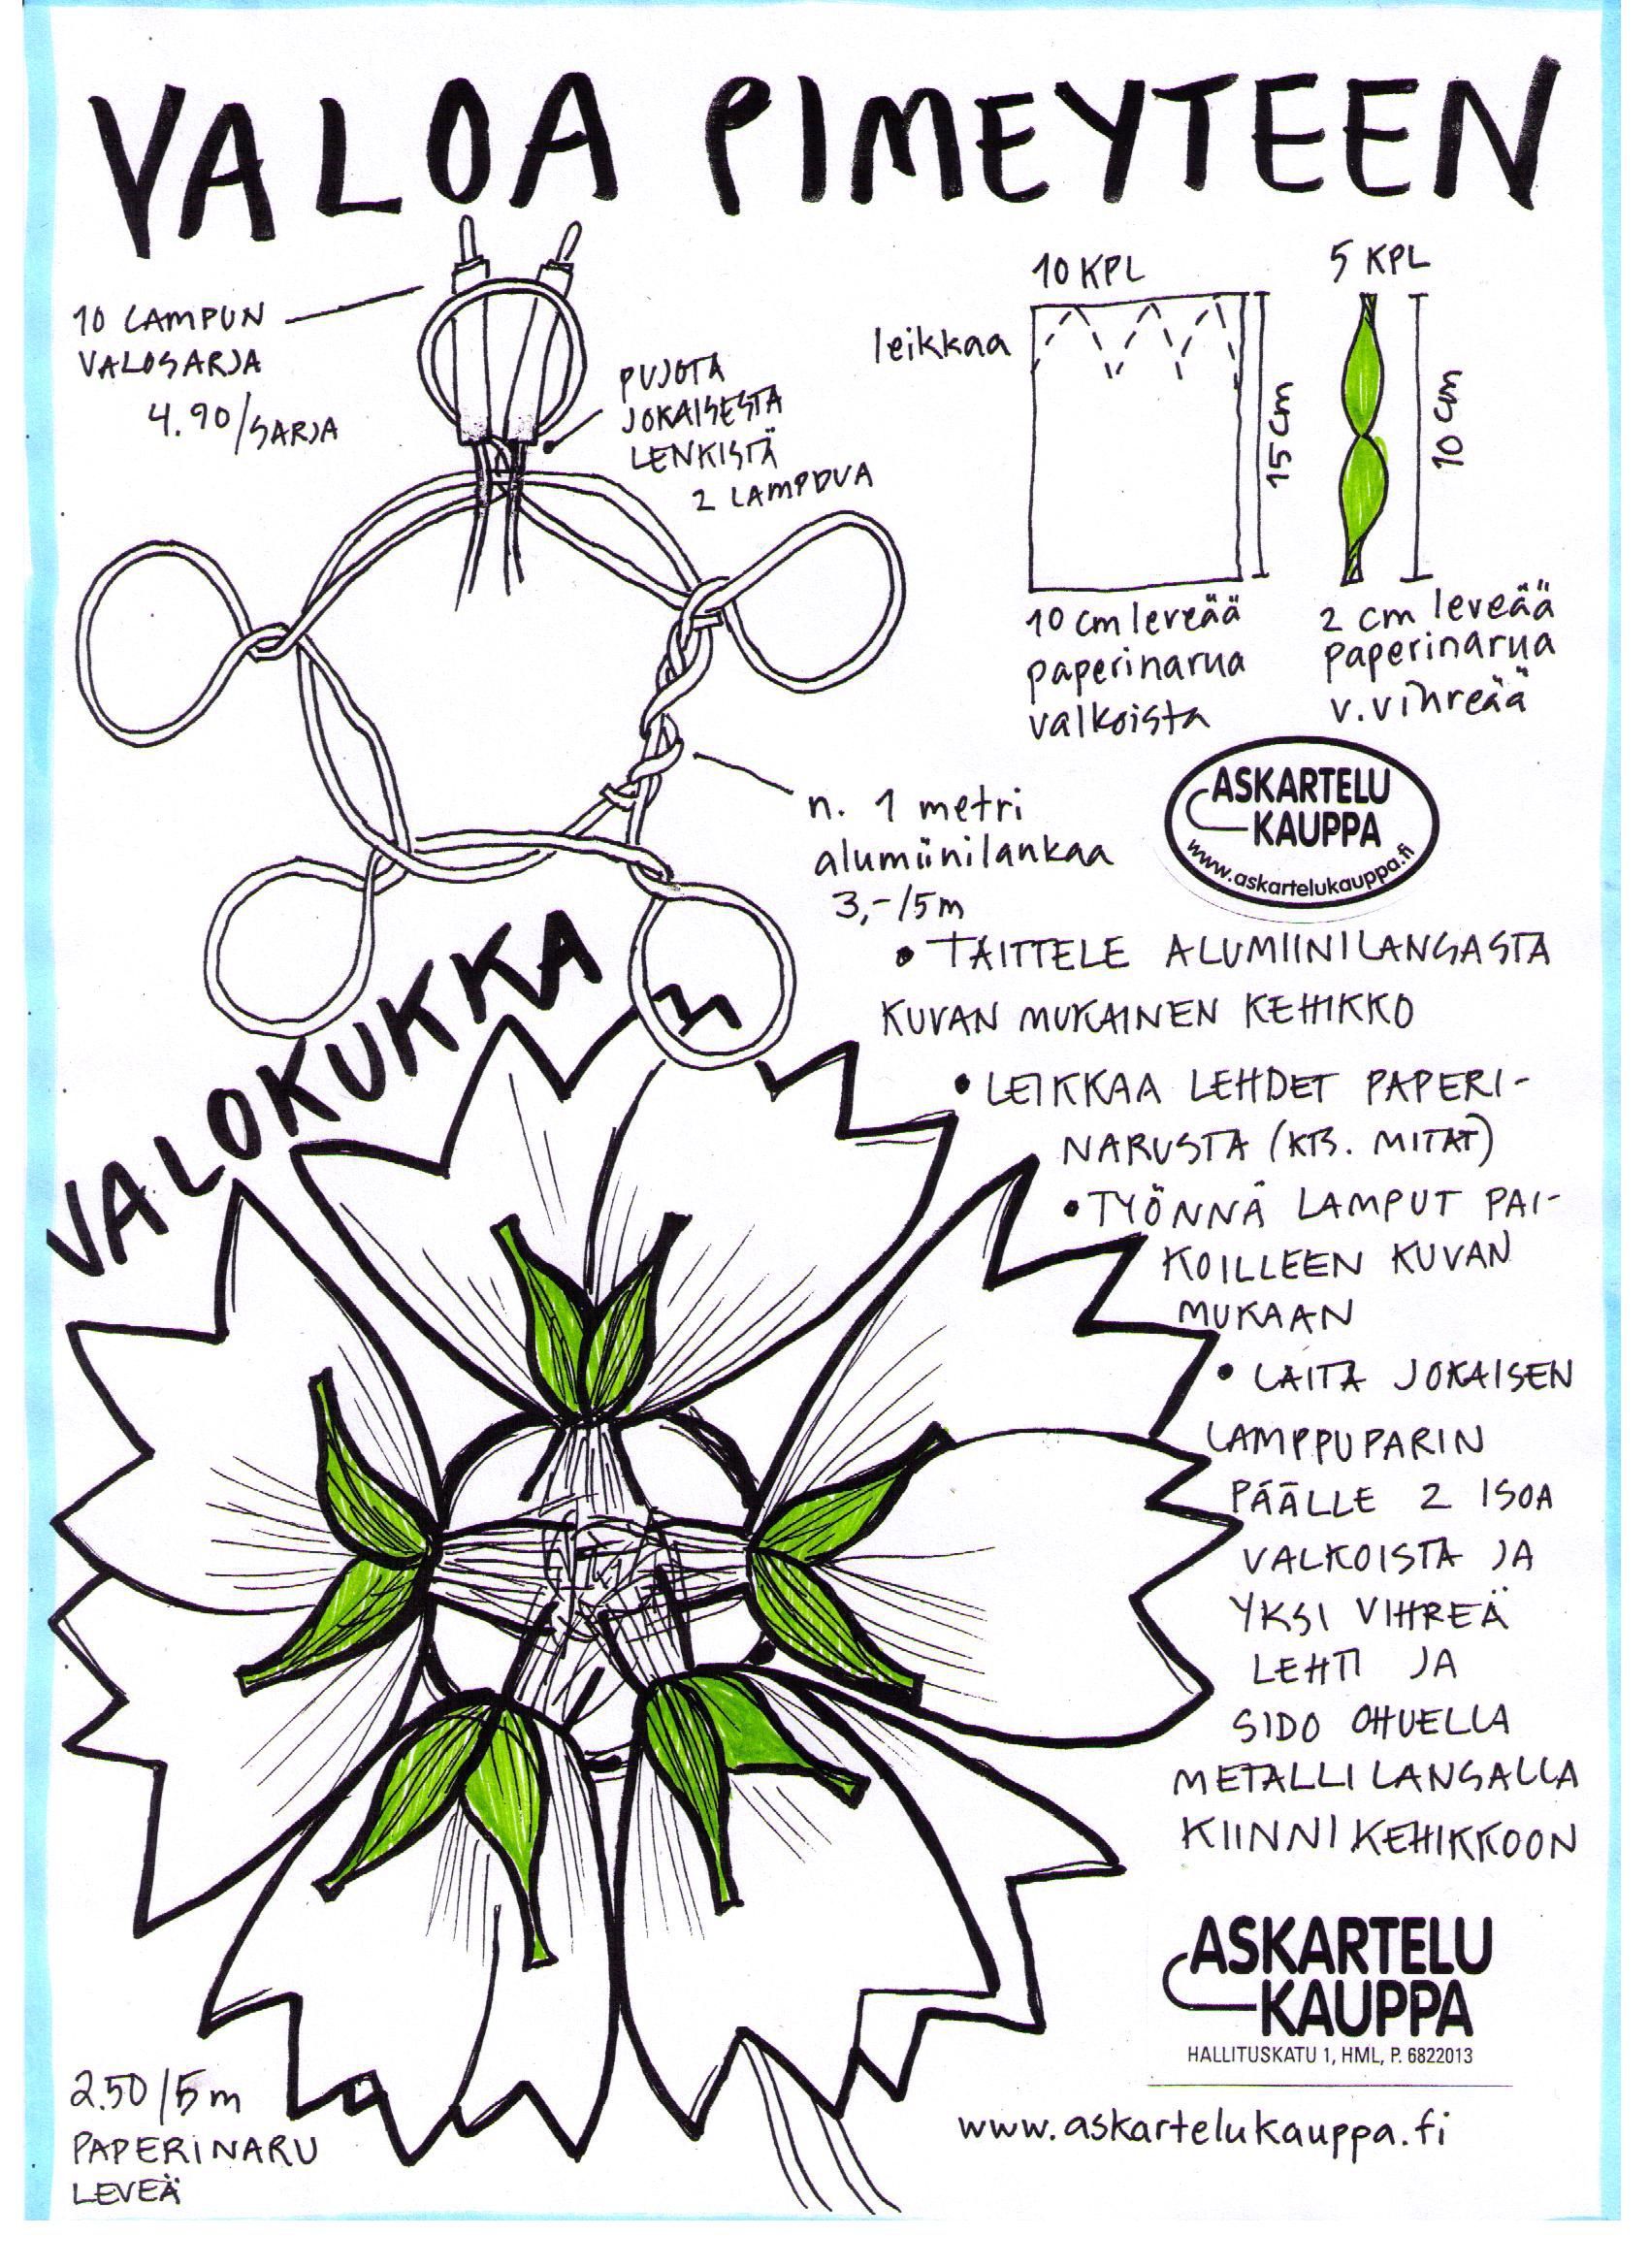 VALOA PIMEYTEEN
10 LAMPUN
VALOSARJA
4.90/SARJA
PUJOTA
JOKAISESTA
LENKISTÄ
2 LAMPPUA
10 KPL
leikkaa
15 cm
10 cm leveää
paperinarua
valkoista
5 KPL
10 cm
2 cm leveää
paperinarua
v.vihreää
ASKARTELU
KAUPPA
www.askartelukauppa.fi
n. 1 metri
alumiinilankaa
3,-/5m
VALOKUKKA
• TAITTELE ALUMIINILANGASTA
KUVAN MUKAINEN KEHIKKO
• LEIKKAA LEHDET PAPERI-
NARUSTA (KTS. MITAT)
• TYÖNNÄ LAMPUT PAI-
KOILLEEN KUVAN
MUKAAN
• LAITA JOKAISEN
LAMPPUPARIN
PÄÄLLE 2 ISOA
VALKOISTA JA
YKSI VIHREÄ
LEHTI JA
SIDO OHUELLA
METALLILANGALLA
KIINNI KEHIKKOON
ASKARTELU
KAUPPA
HALLITUSKATU 1, HML, P. 6822013
www.askartelukauppa.fi
2.50/5m
PAPERINARU
LEVEÄ